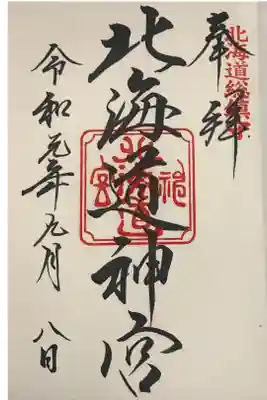 奉拝
北海道総鎮守
北海道神宮
令和元年九月八日